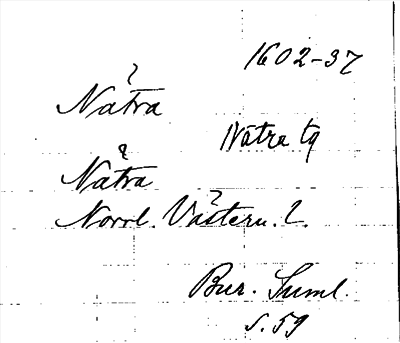 1602-37
Nätra
Nätra tg
Nätra
Norrl. Västern. l.
Bur. Suml.
s. 59